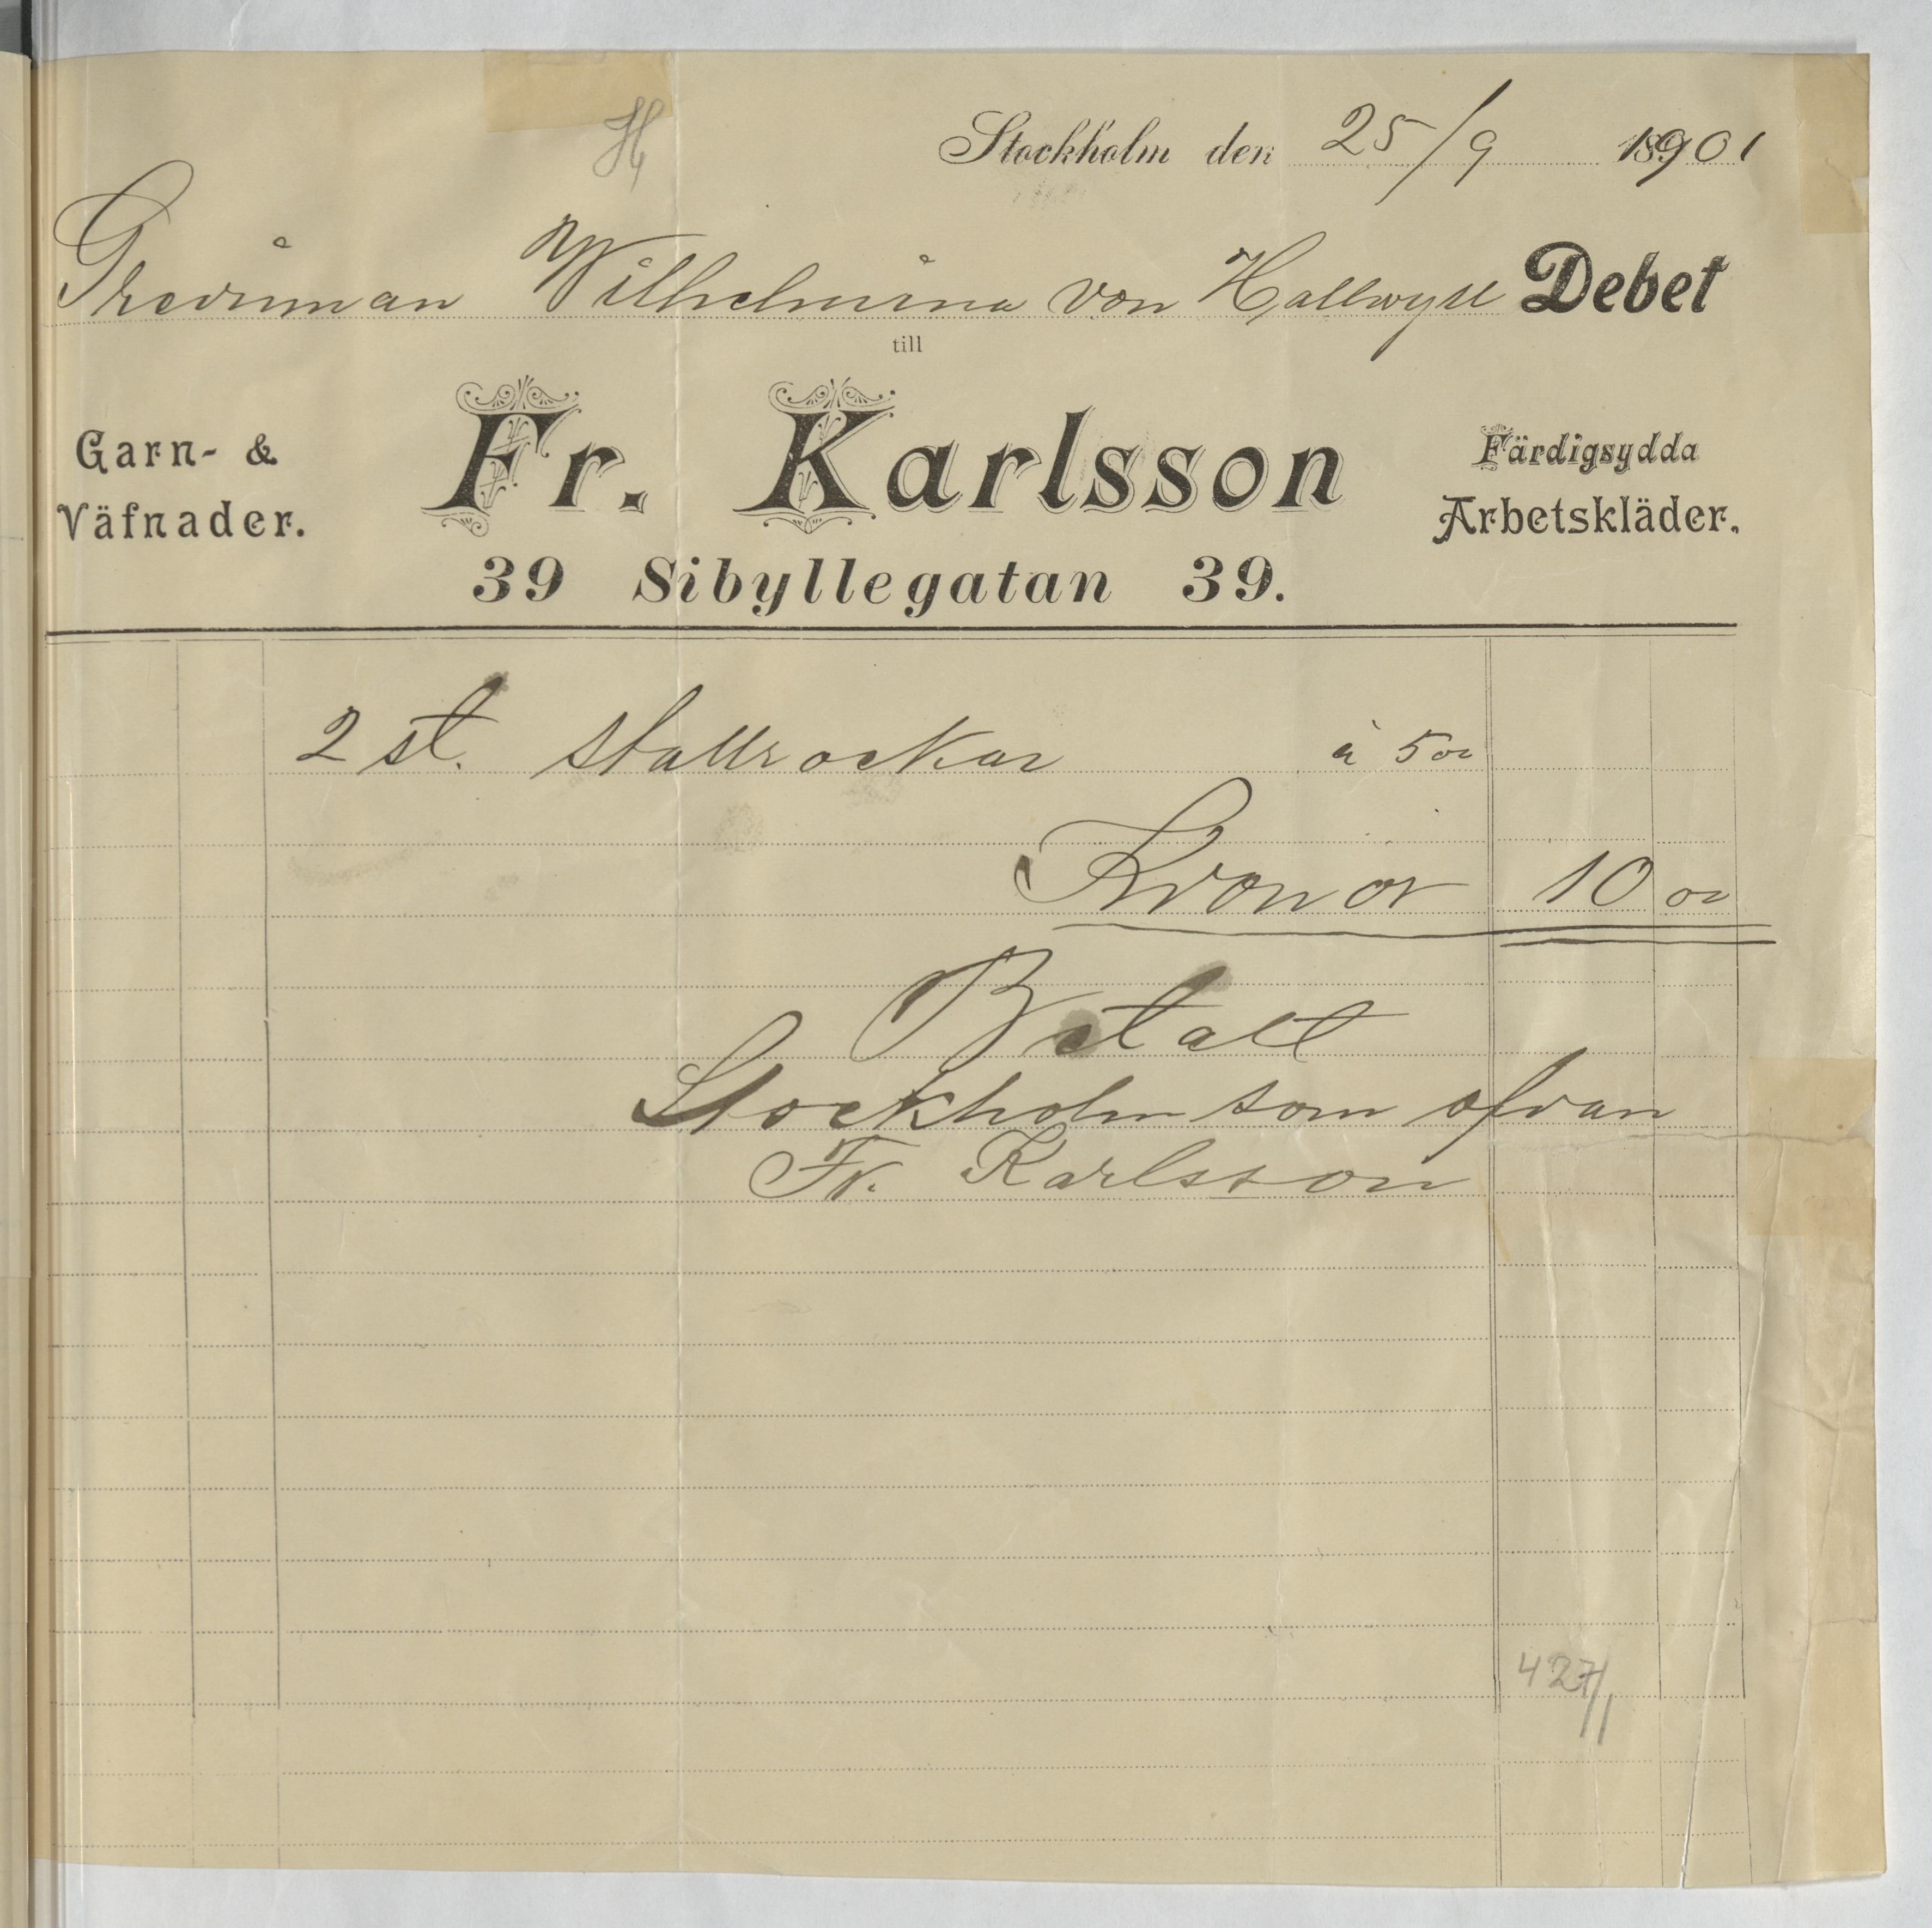 H
Stockholm den 25/9 1901
Grevinnan Wilhelmina von Hallwyll Debet
till
Garn- &
Väfnader.
Fr. Karlsson
Färdigsydda
Arbetskläder.
39 Sibyllegatan 39.
2 st. stallrockar à 5 00
Kronor 10 00
Betalt
Stockholm som ofvan
Fr. Karlsson
427/1